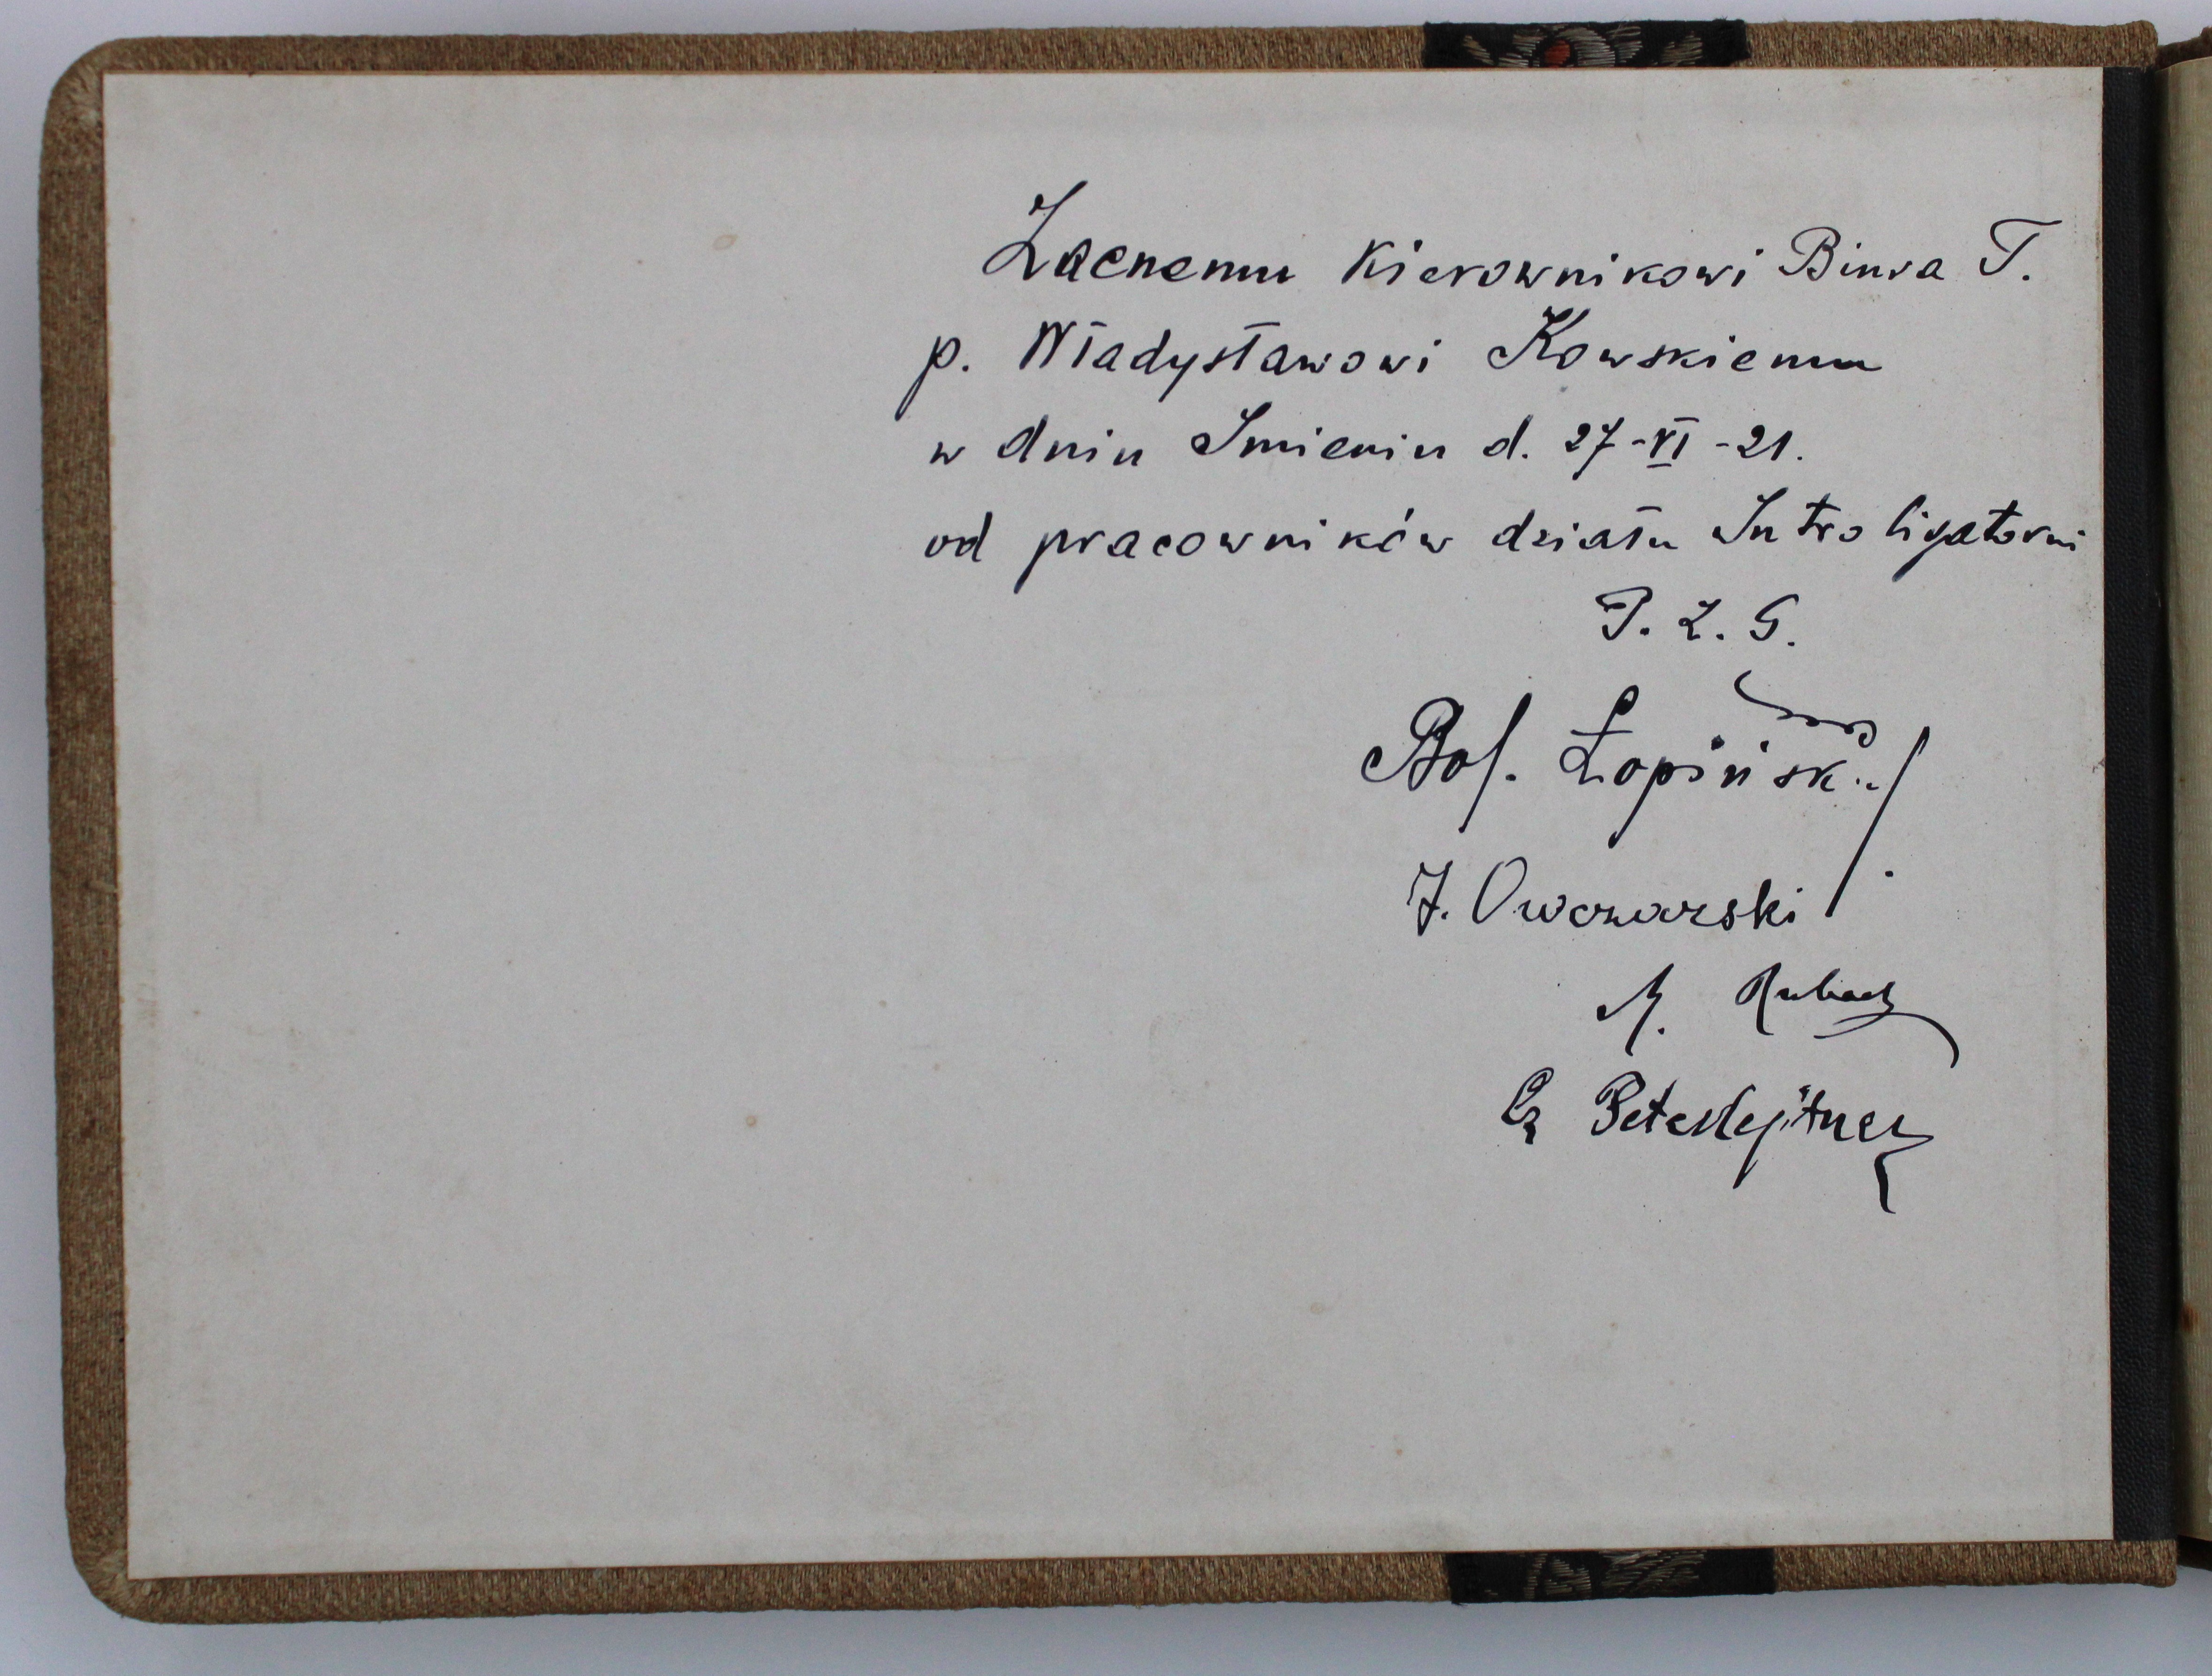 Zacnemu Kierownikowi Biura T.
p. Władysławowi Kowskiemu
w dniu Imienin d. 27-VI-21.
od pracowników działu Introligatorni
P. Z. G.
Bol. Łopiński
J. Owczarski
M. Rubach
Cz